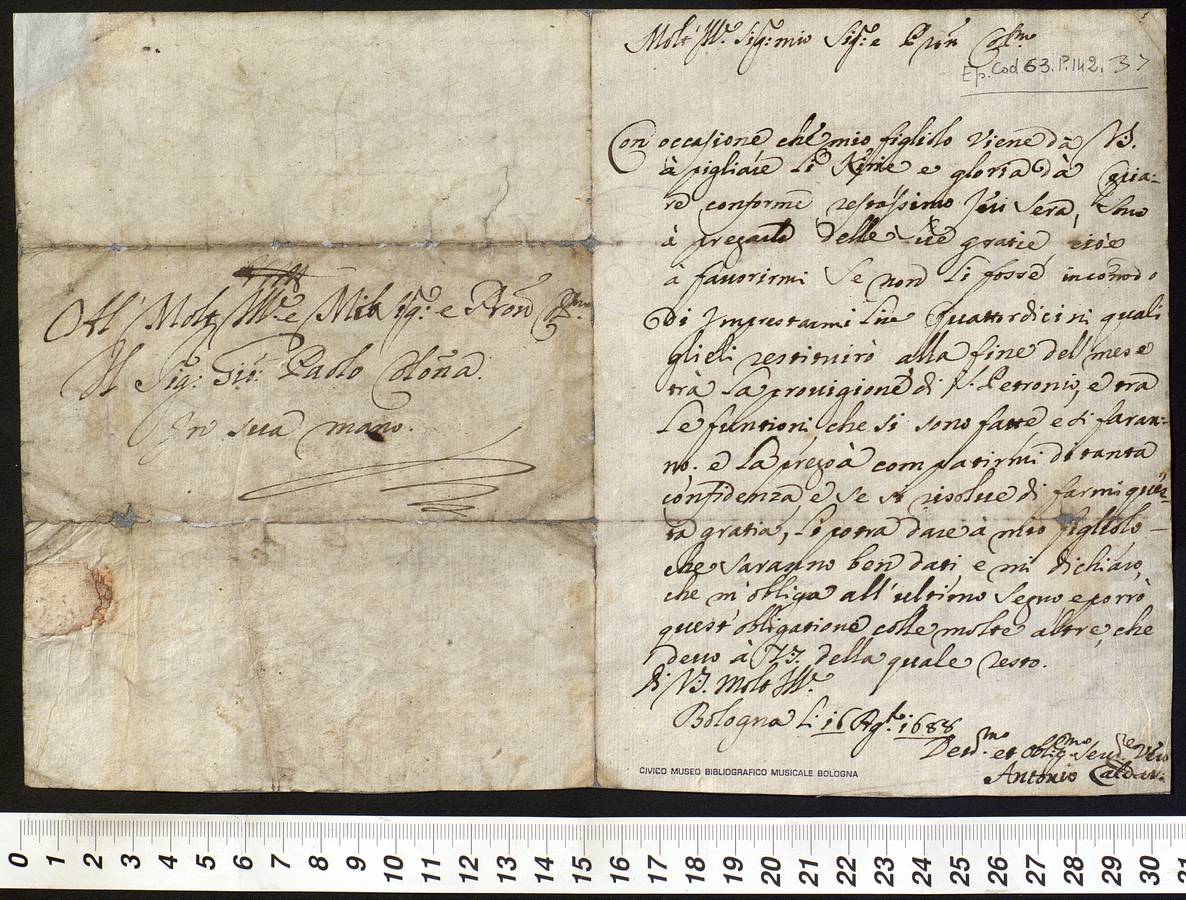 All' Molt Ill.re e Mio Sig.r e Pron
Il Sig: Gio: Paolo Colōna.
In sua mano.
Molt' Ill.re Sig: mio Sig.r e Pron
Ep. Cod. 63. P. 142. 37
Con occasione che mio figliolo viene da VS.
à pigliare li Kirie e gloria dà
re conforme restassimo jeri sera,
à pregarla delle sue gratie cioè
à favorirmi se non li fosse incōmodo
Di Imprestarmi lire quattordici ni quali
glieli restituirò alla fine del mese
trà la provigione di S. Petronio, e tra
le funtioni che si sono fatte e si faran:
no. e la prego à compatirmi di tanta
confidenza e se si risolve di farmi ques:
ta gratia, li potra dare à mio figliolo
che saranno ben dati e mi dichiaro
che m'obliga all'ultimo segno e porrò
quest'obligatione colle molte altre, che
devo à VS. della quale resto.
di VS. Molt Ill.re
Bologna li 16 Ag.to 1688
Dev.mo et oblig.mo Serv.re Vero
Antonio Caldar.
CIVICO MUSEO BIBLIOGRAFICO MUSICALE BOLOGNA
0 1 2 3 4 5 6 7 8 9 10 11 12 13 14 15 16 17 18 19 20 21 22 23 24 25 26 27 28 29 30 31